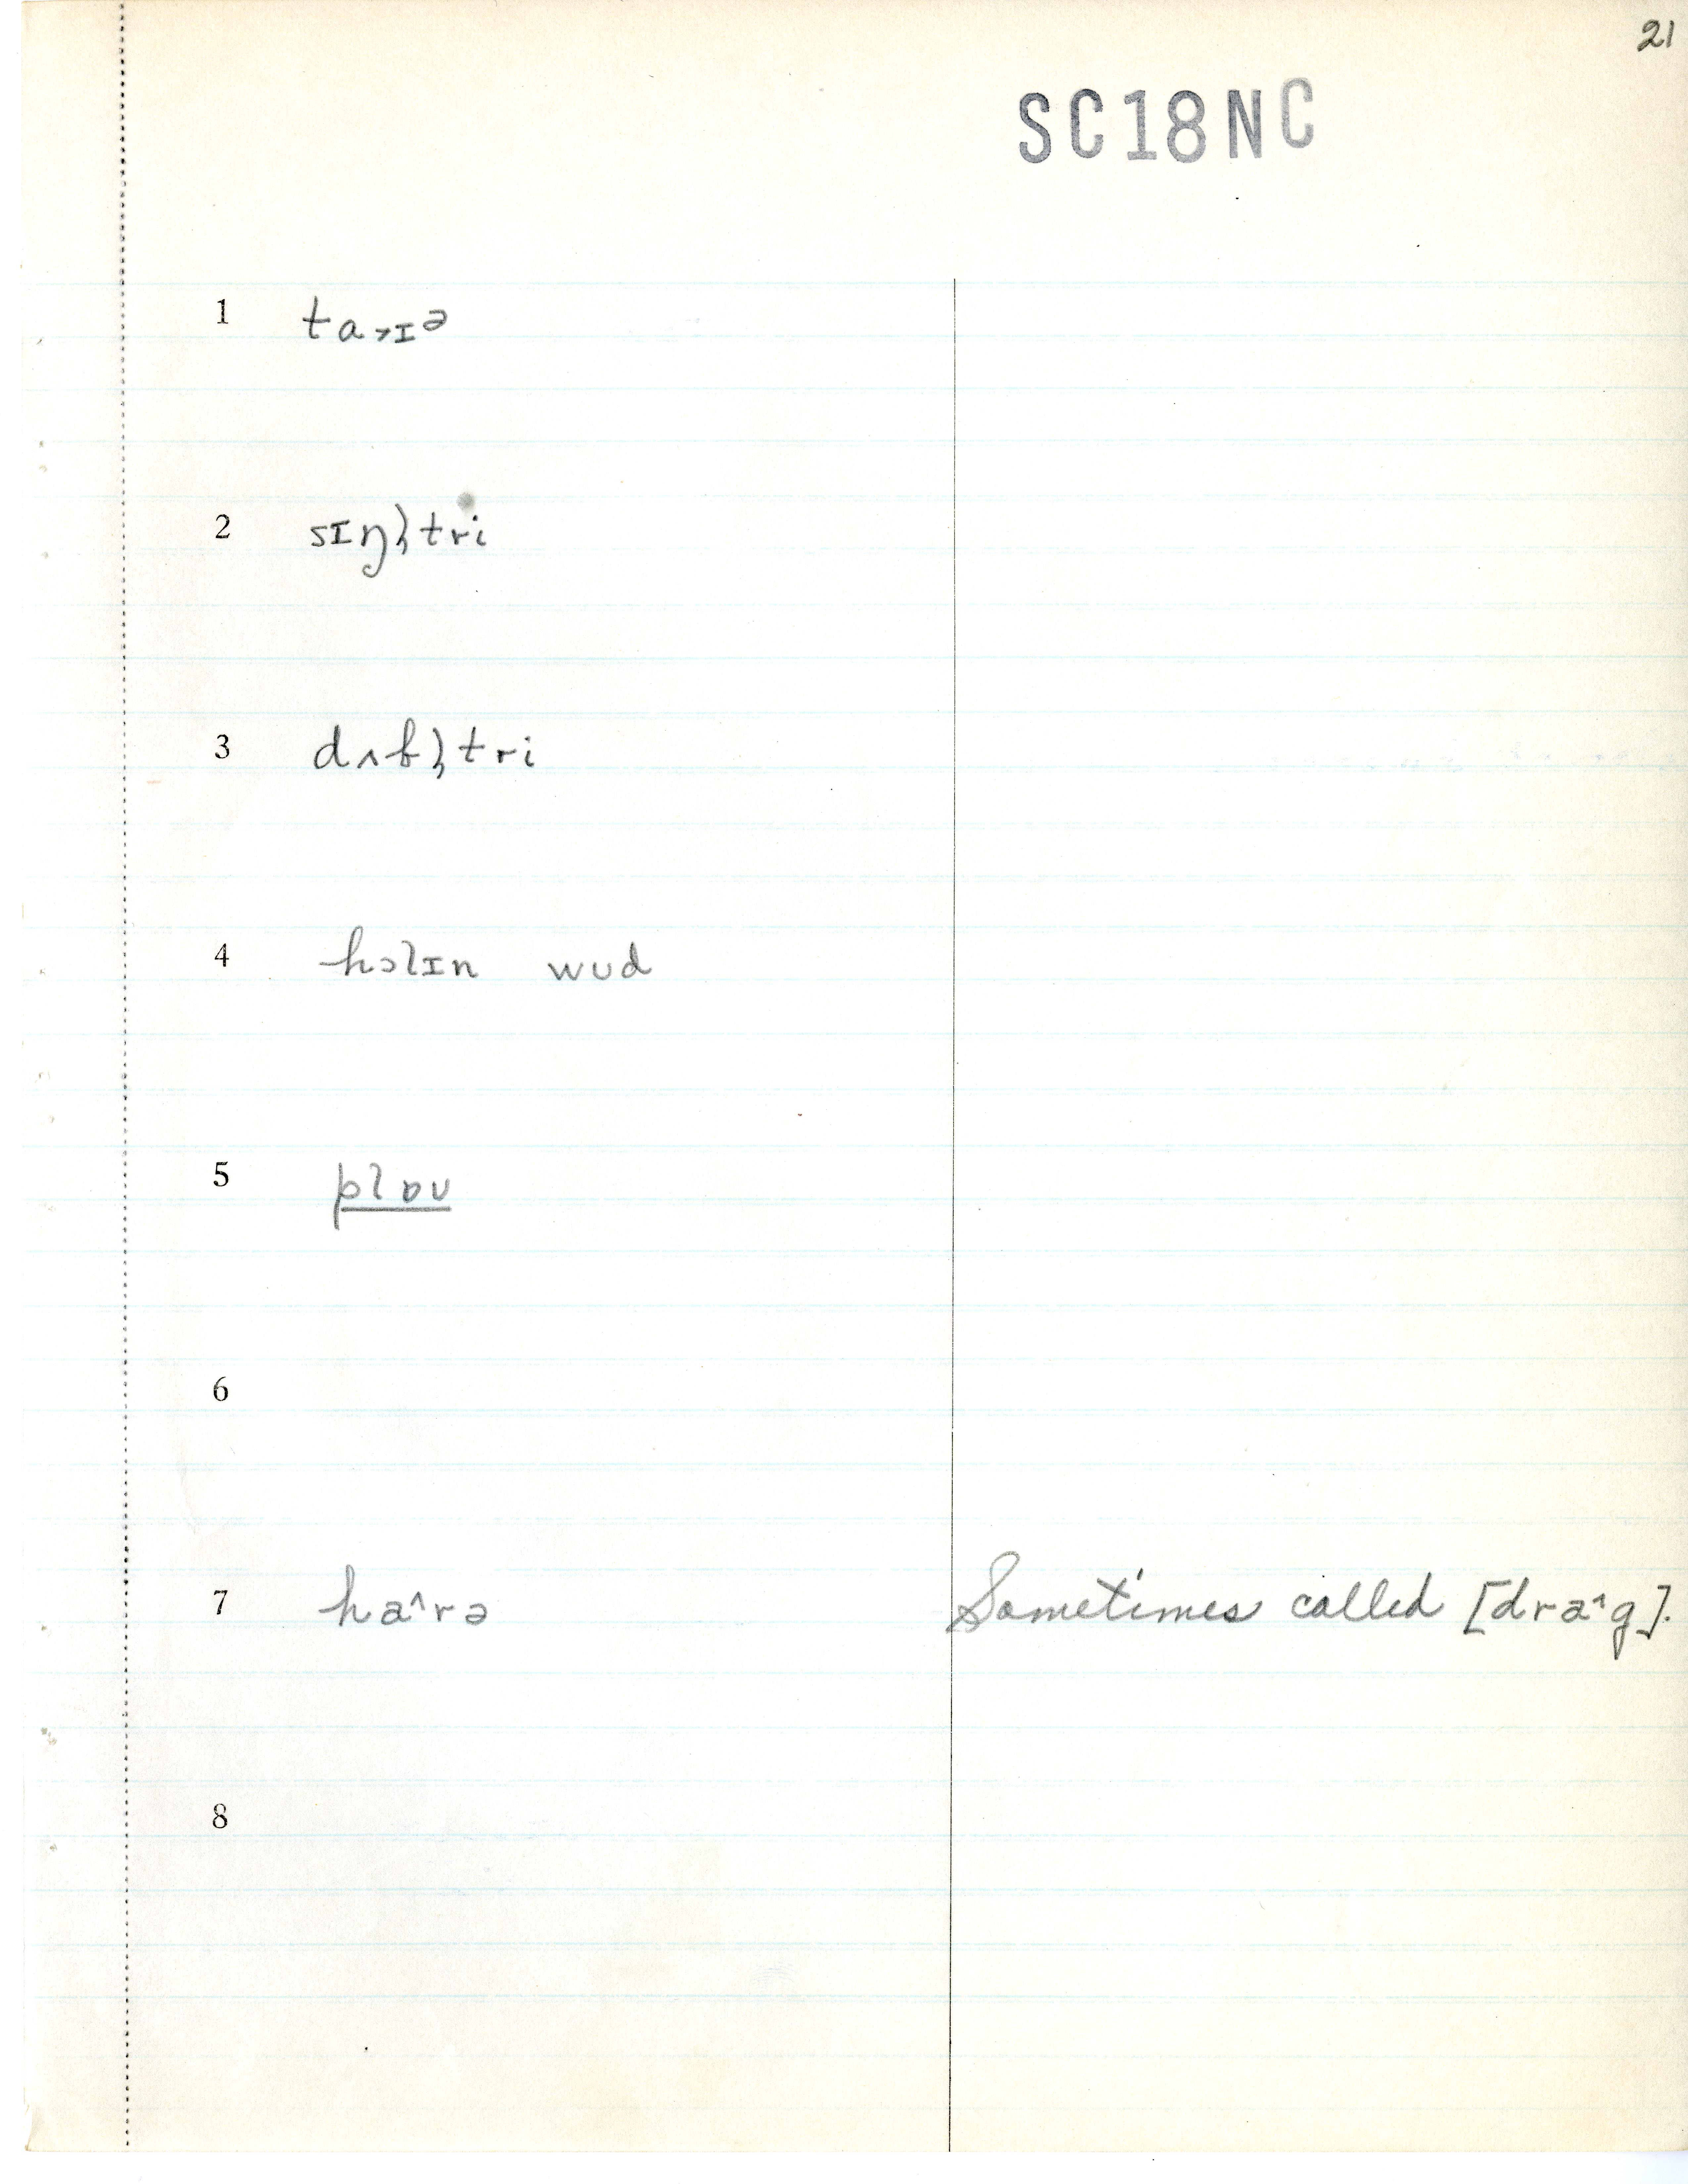 21
SC18NC
1 ta˃ɪᵊ
2 sɪŋḷtri
3 dʌbḷtri
4 hɔlɪn wud
5 plɒu
6
7 ha^rə Sometimes called [dra^g].
8